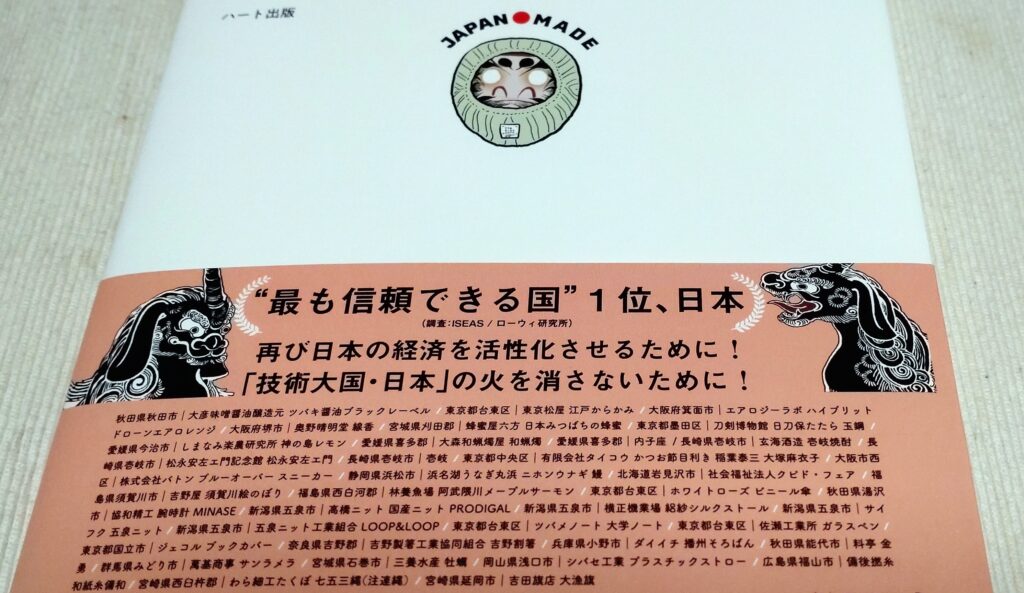 ハート出版
JAPAN MADE
“最も信頼できる国”1位、日本
(調査:ISEAS / ローウィ研究所)
再び日本の経済を活性化させるために!
「技術大国・日本」の火を消さないために!
秋田県秋田市|大彦味噌醤油醸造元 ツバキ醤油ブラックレーベル / 東京都台東区|東京松屋 江戸からかみ / 大阪府箕面市|エアロジーラボ ハイブリット
ドローンエアロレンジ / 大阪府堺市|奥野晴明堂 線香 / 宮城県刈田郡|蜂蜜屋六方 日本みつばちの蜂蜜 / 東京都墨田区|刀剣博物館 日刀保たたら 玉鋼 /
愛媛県今治市|しまなみ楽農研究所 神の島レモン / 愛媛県喜多郡|大森和蝋燭屋 和蝋燭 / 愛媛県喜多郡|内子座 / 長崎県壱岐市|玄海酒造 壱岐焼酎 / 長
崎県壱岐市|松永安左エ門記念館 松永安左エ門 / 長崎県壱岐市|壱岐 / 東京都中央区|有限会社タイコウ かつお節目利き 稲葉泰三 大塚麻衣子 / 大阪市西
区|株式会社バトン ブルーオーバー スニーカー / 静岡県浜松市|浜名湖うなぎ丸浜 ニホンウナギ 鰻 / 北海道岩見沢市|社会福祉法人クピド・フェア / 福
島県須賀川市|吉野屋 須賀川絵のぼり / 福島県西白河郡|林養魚場 阿武隈川メープルサーモン / 東京都台東区|ホワイトローズ ビニール傘 / 秋田県湯沢
市|協和精工 腕時計 MINASE / 新潟県五泉市|高橋ニット 国産ニット PRODIGAL / 新潟県五泉市|横正機業場 絽紗シルクストール / 新潟県五泉市|サイ
フク 五泉ニット / 新潟県五泉市|五泉ニット工業組合 LOOP&LOOP / 東京都台東区|ツバメノート 大学ノート / 東京都台東区|佐瀬工業所 ガラスペン /
東京都国立市|ジェコル ブックカバー / 奈良県吉野郡|吉野製箸工業協同組合 吉野割箸 / 兵庫県小野市|ダイイチ 播州そろばん / 秋田県能代市|料亭 金
勇 / 群馬県みどり市|萬基商事 サンラメラ / 宮城県石巻市|三養水産 牡蠣 / 岡山県浅口市|シバセ工業 プラスチックストロー / 広島県福山市|備後撚糸
和紙糸備和 / 宮崎県西臼杵郡|わら細工たくぼ 七五三縄(注連縄) / 宮崎県延岡市|吉田旗店 大漁旗